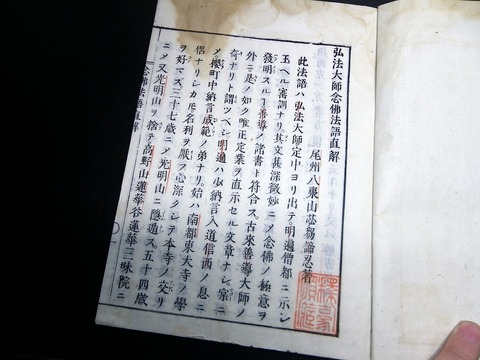 弘法大師念佛法語直解
尾州八事山苾蒭諦忍著
此法語ハ弘法大師定中ヨリ出テ明遍僧都ニ示シ
玉ヘル審訓ナリ其文甚深微妙ニノ念佛ノ極意ヲ
發明スル丁善導ノ諸書ト符合ス古來善導大師ノ
外ニ是ノ如ク唯正定業ヲ直示セル文章ナシ寔ニ
奇ナリト謂ツベシ明遍ハ少納言入道信西ノ息ニ
ノ櫻町中納言成範ノ弟ナリ始ハ南都東大寺ノ學
侶ナリシカ𪜈名利ヲ厭フ心深クシテ本寺ノ交リ
ヲ好マズ三十七歳ニノ光明山ニ隱遁ス五十四歳
ニノ又光明山ヲ捨テ高野山蓮華谷蓮華三昧院ニ
念佛法語直解